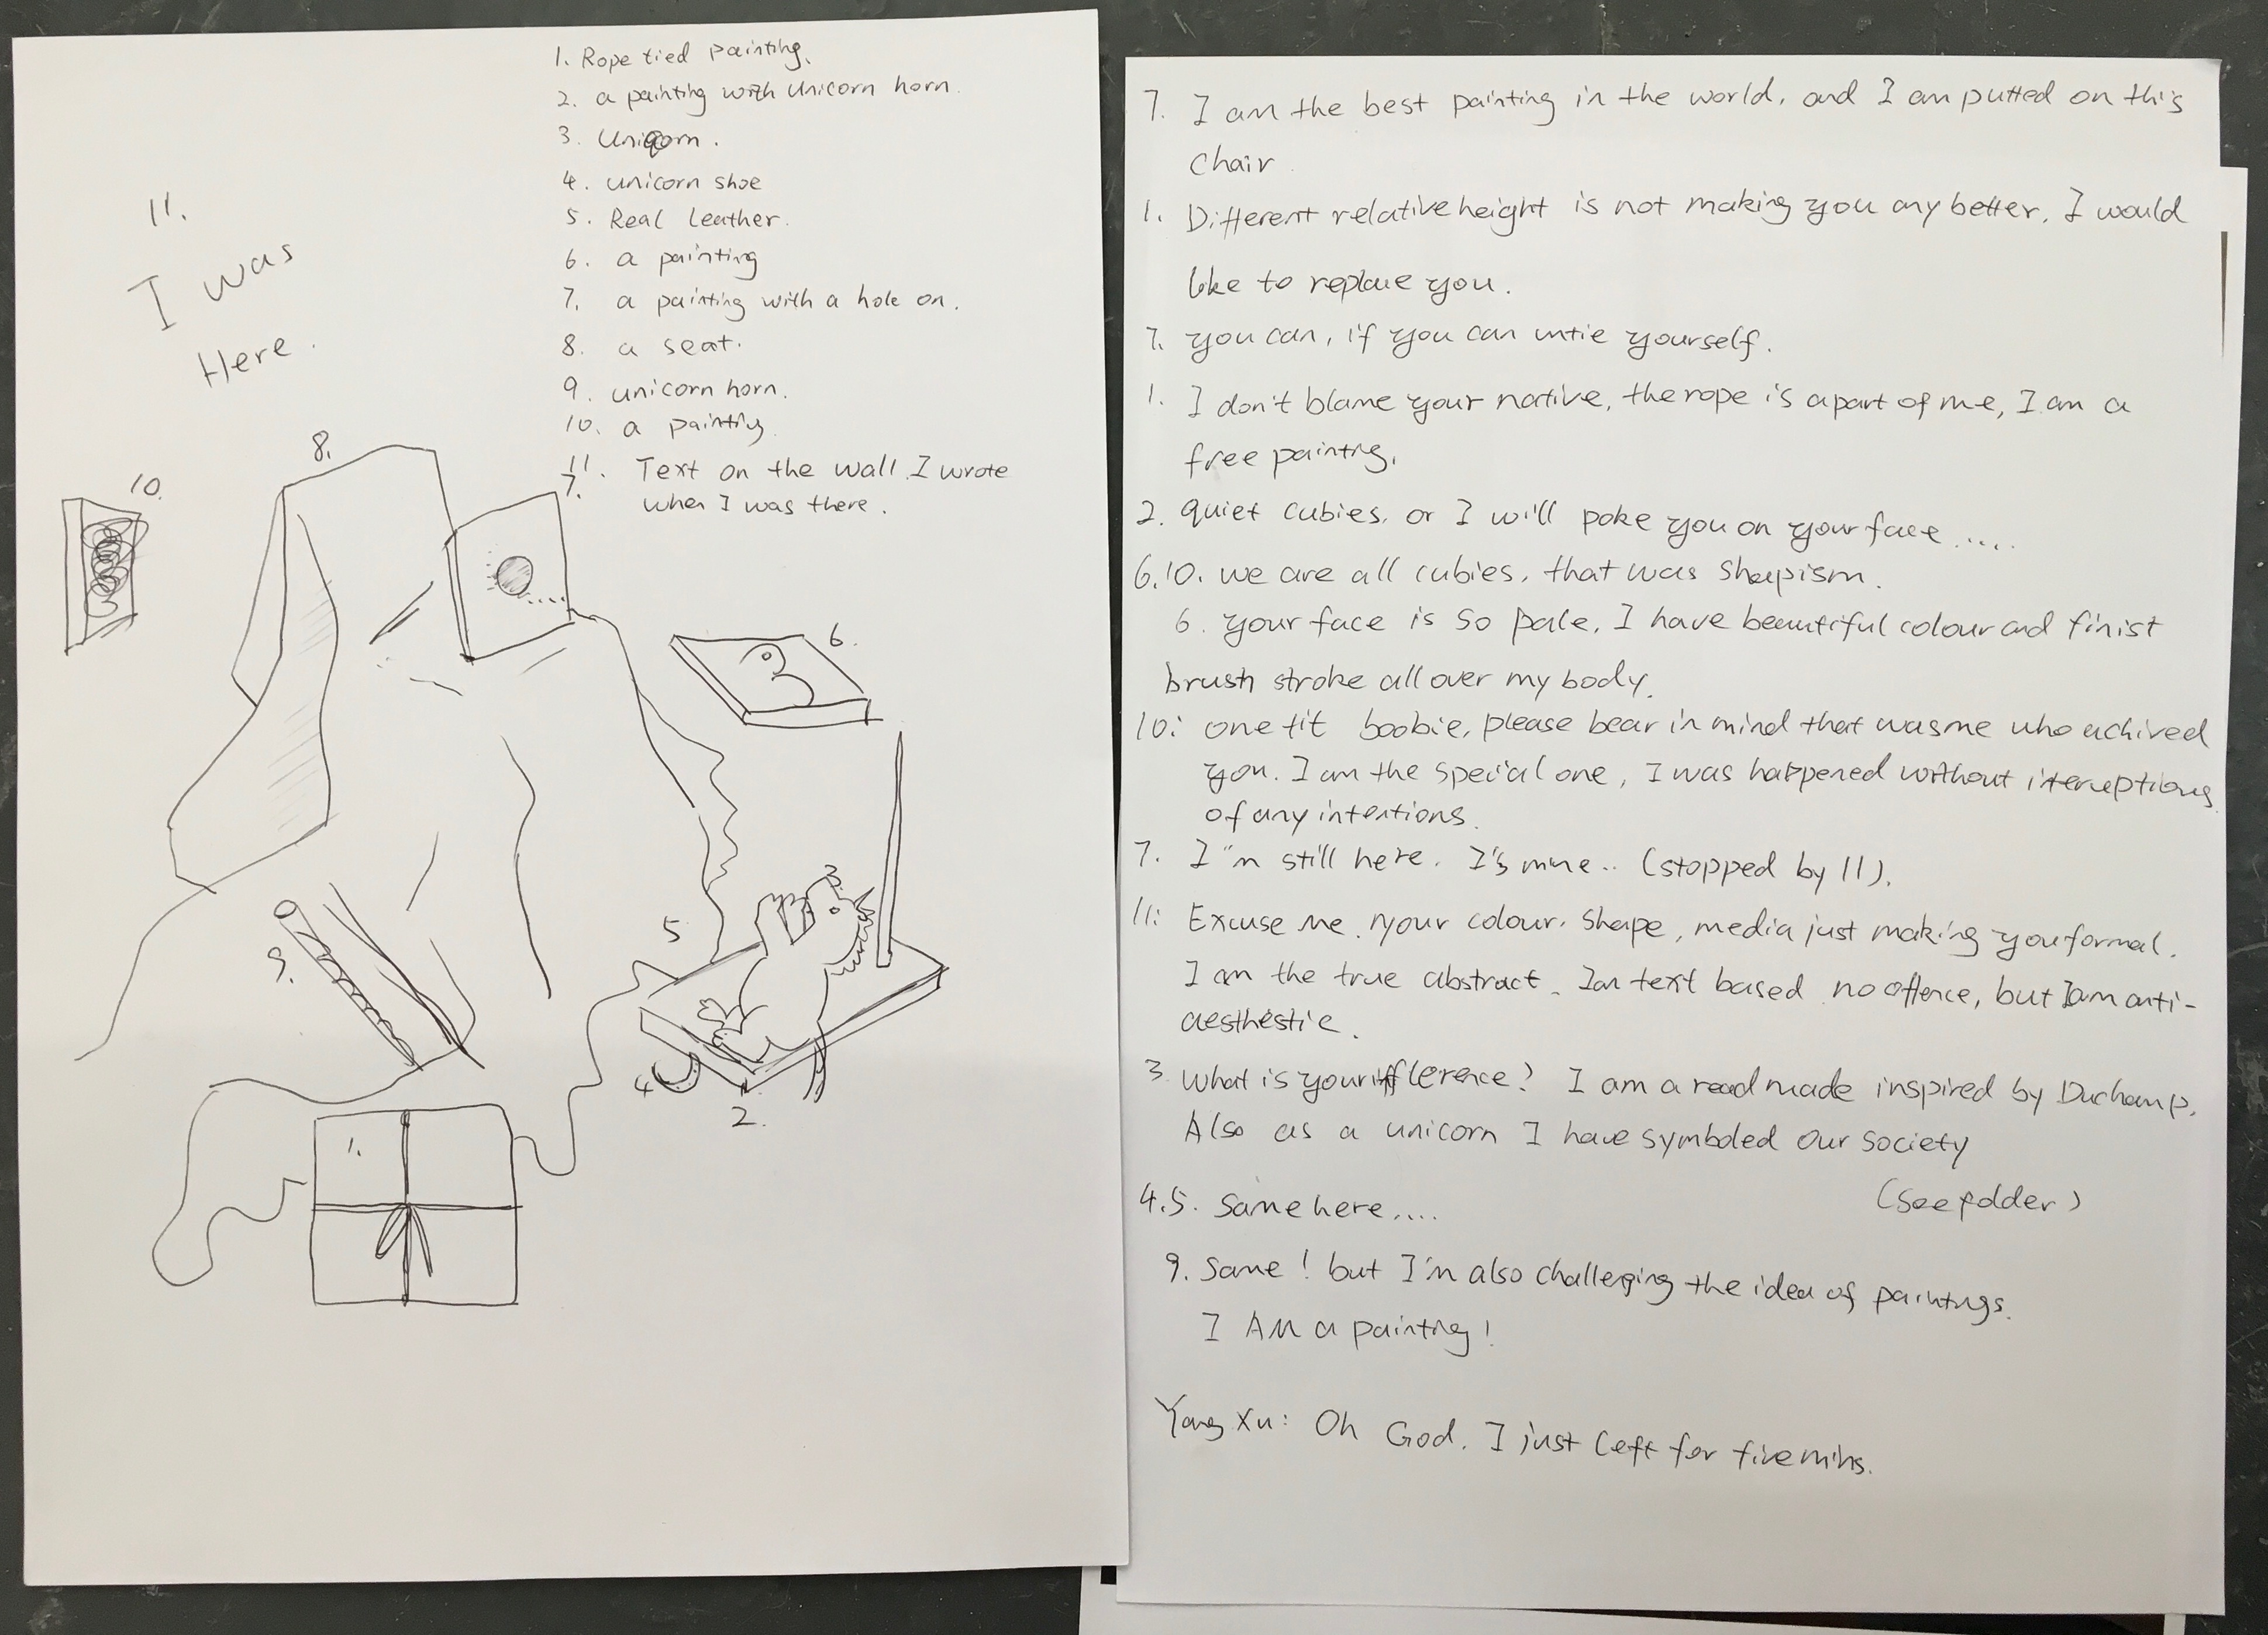 1. Rope tied painting.
2. a painting with unicorn horn.
3. Uniqorn.
4. unicorn shoe
5. Real Leather.
6. a painting
7. a painting with a hole on.
8. a seat.
9. unicorn horn.
10. a painting
11. Text on the wall I wrote
when I was there.
11.
I was
Here.
8.
10.
7.
6.
5
9.
3
4
2.
1.
7. I am the best painting in the world, and I am putted on this
Chair.
1. Different relative height is not making you any better, I would
like to replace you.
7. you can, if you can untie yourself.
1. I don't blame your native, the rope is a part of me, I am a
free painting.
2. quiet cubies, or I will poke you on your face .....
6.10. we are all cubies, that was Shapism.
6. your face is so pale, I have beautiful colour and finist
brush stroke all over my body.
10: one tit boobie, please bear in mind that was me who achived
you. I am the special one, I was happened without interuptions
of any intentions.
7. I"m still here. I's mine.. (stopped by 11).
11: Excuse me, your colour, shape, media just making you formal.
I am the true abstract. I am text based no offence, but I am anti-
aesthestic.
3. What is your ? I am a readmade inspired by Duchamp.
Also as a unicorn I have symboled our society
(see folder)
4.5. Same here....
9. Same! but I'm also challenging the idea of paintings.
I AM a painting!
Yang Xu: Oh God. I just left for five mins.